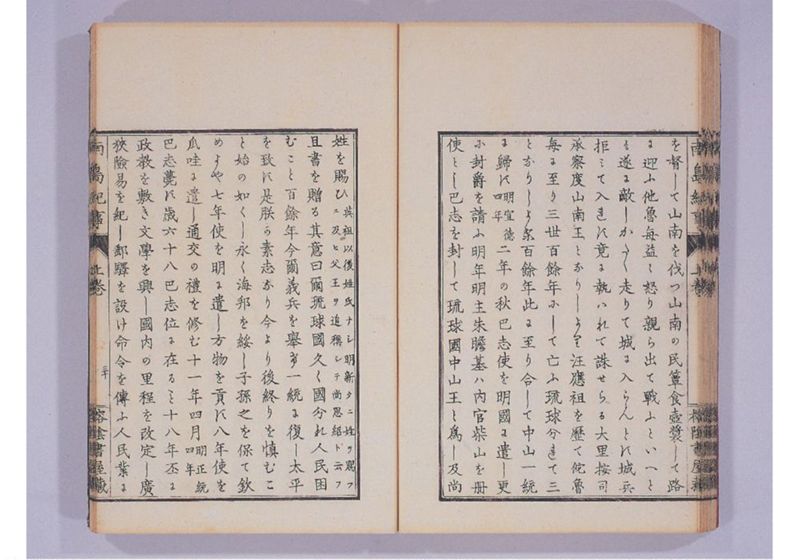 を督して山南を伐つ山南の民簞食壺漿して路
に迎ふ他魯毎益々怒り親ら出て戰ふといへと
も遂に敵しかたく走りて城に入らんとれは城兵
拒こて入れに竟に執はれて誅せらる大里按司
承察度山南王とかりしより汪應祖を歴て佗魯
毎に至り三世百餘年ふして亡ふ琉球分きて三
とかりしより百餘年此に至り合して中山一統
に歸に明宣德四年二年の秋巴志使を明國に遣し更
に封爵を請ふ明年明主朱瞻基ハ内官柴山を册
使とし巴志を封して琉球國中山王と爲し及尚
姓を賜ひ其祖以後姓氏ナシ明新タニ姓ヲ賜フニ及ヒ父王ヲ追稱シテ尚思紹ト云フ
且書を贈る其意曰爾琉球國久く國分れ人民困
むこと百餘年今爾義兵を擧け一統に復し太平
を致に是朕の素志かり今より後終りを慎むこ
と始の如くし永く海邦を綏し子孫之を保て欽
めよや七年使を明に遣し方物を貢に八年使を
爪哇に遣し通交の禮を修む十一年四月明正統四年
巴志薨に歳六十八巴志位に在ること十八年丕に
政教を敷き文學を興し國内の里程を改定し廣
狹險易を紀し郵驛を設け命令を傳ふ人民業に
南島紀事
上卷
南島紀事
上卷
榕陰書屋藏